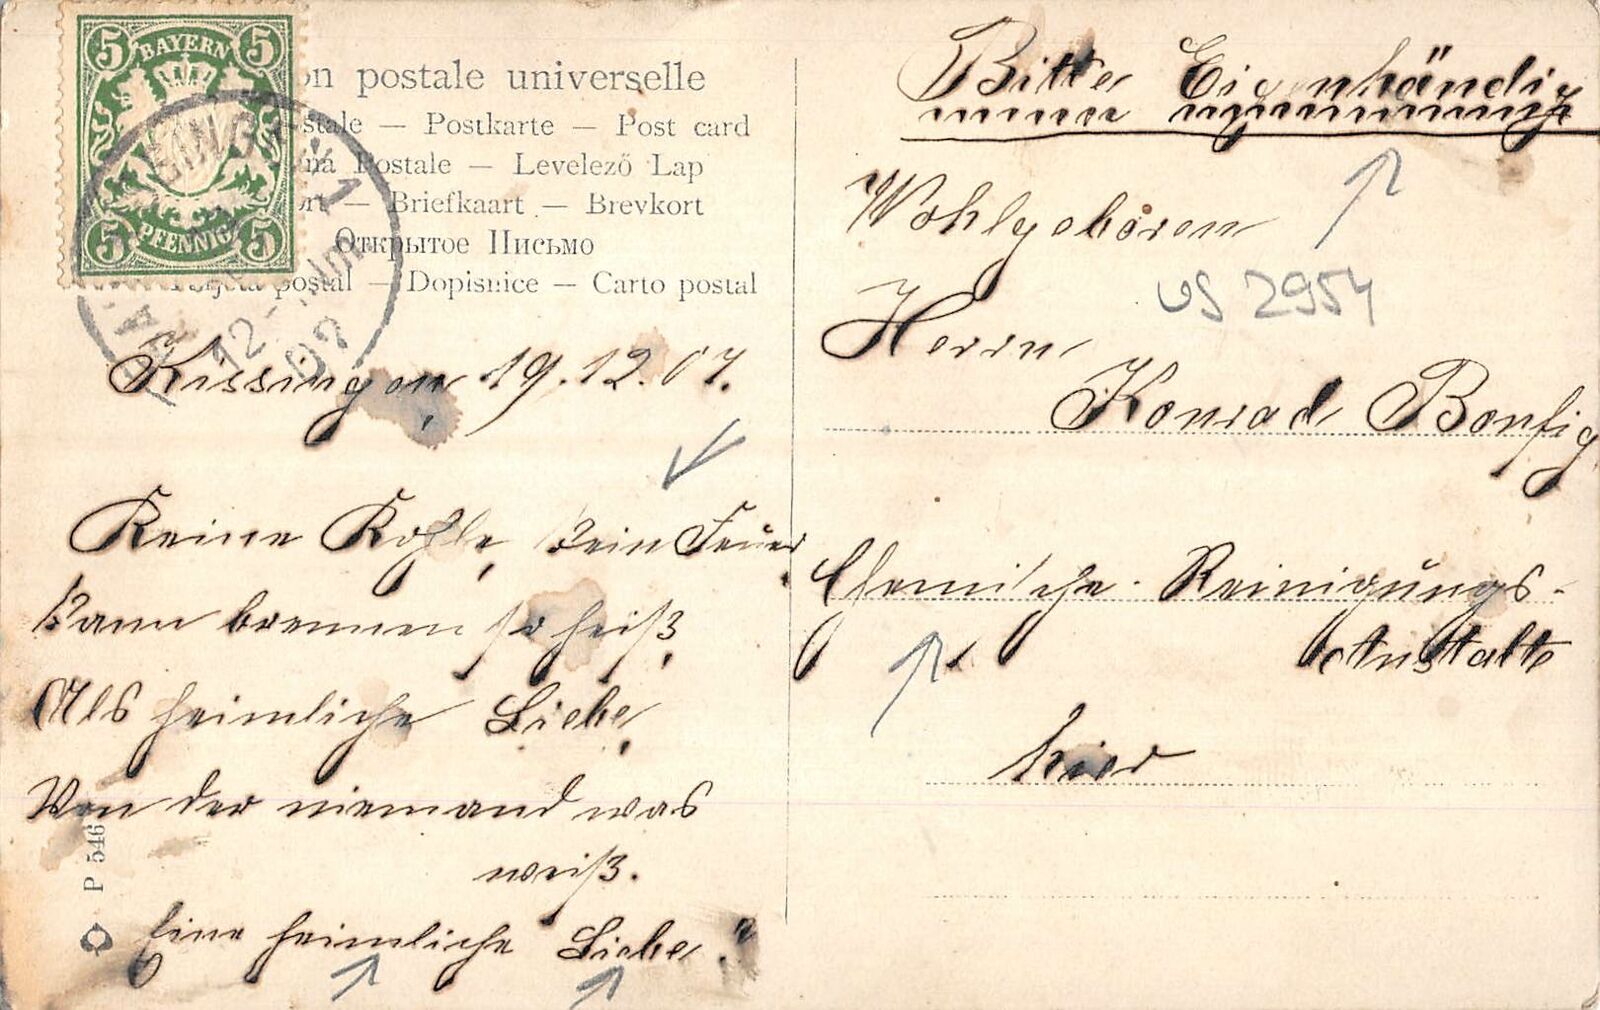 5 BAYERN 5
5 PFENNIG 5
on postale universelle
stale — Postkarte — Post card
ná Postale — Levelező Lap
rt — Briefkaart — Brevkort
Открытое Письмо
postal — Dopisnice — Carto postal
12-
07
Kissingen, 19.12.07.
Keine Kohle, kein Feuer,
kann brennen so heiß,
Als heimliche Liebe,
Von der niemand was
weiß.
Eine heimliche Liebe.?
P 546
Bitte Eigenhändig
Wohlgeboren
US 2954
Herrn
Konrad Bonfig
Chemische-Reinigungs-
Anstalt
hier